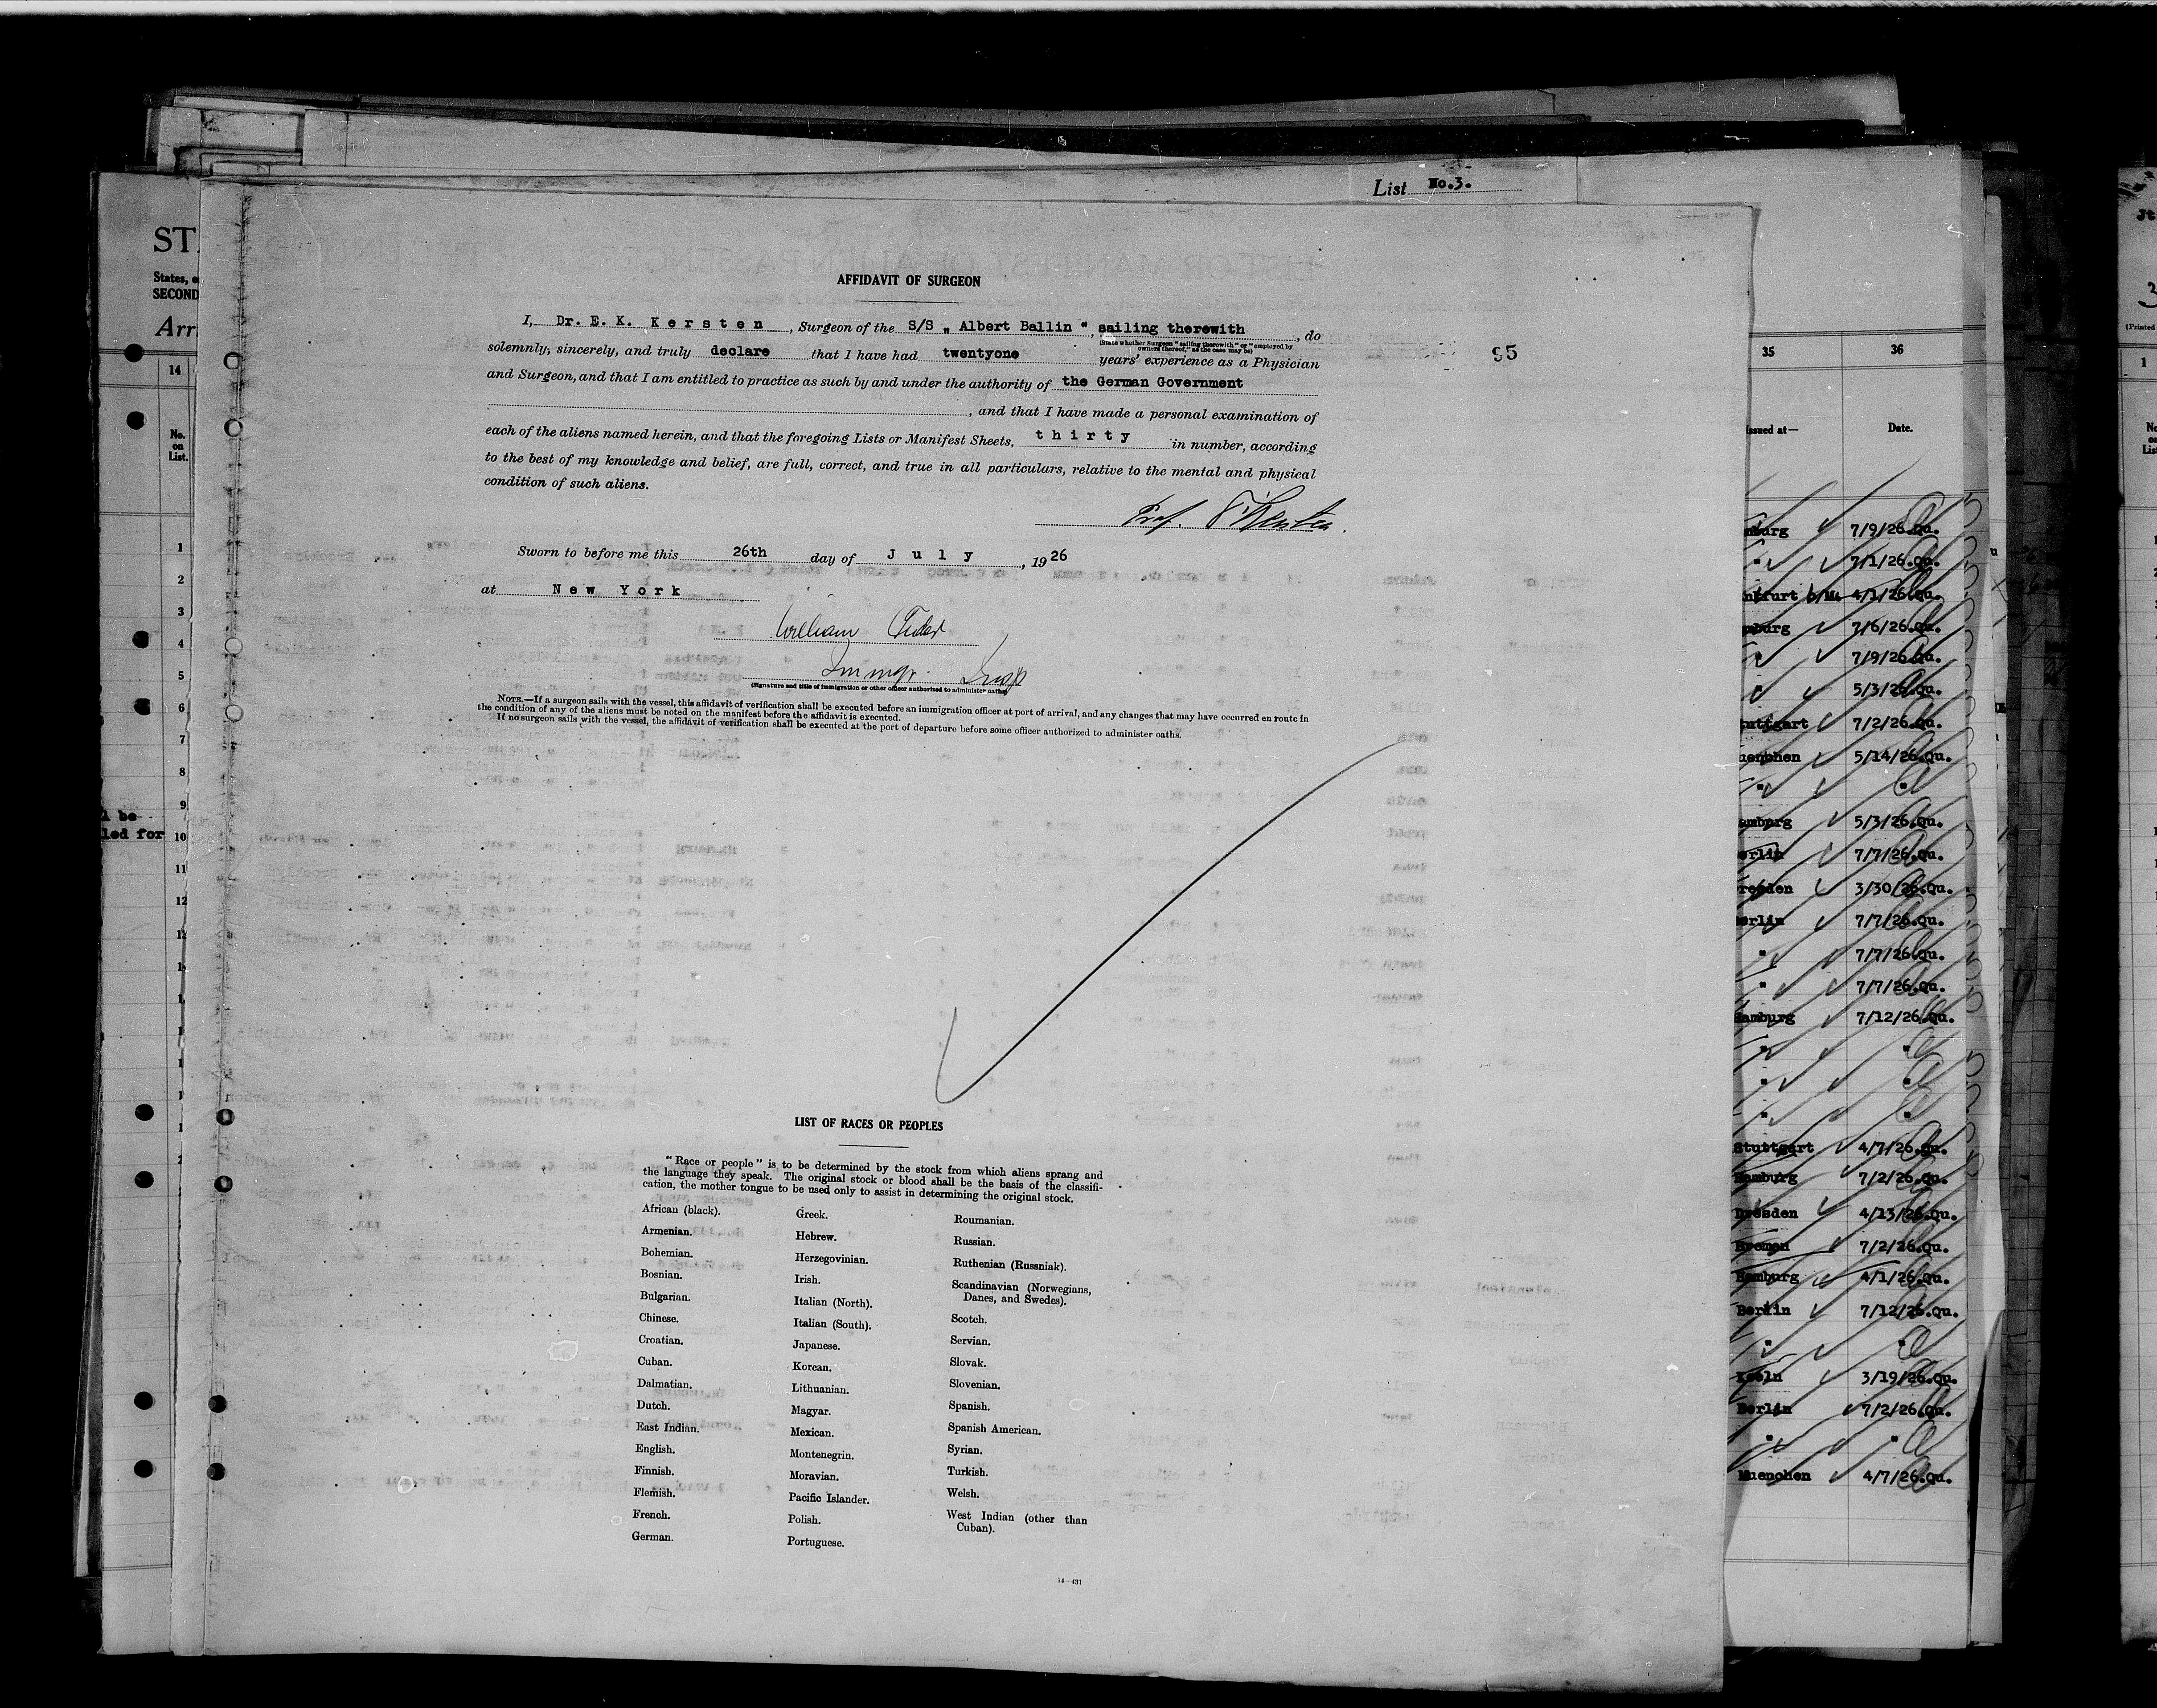 List No.3.
AFFIDAVIT OF SURGEON
I, Dr. E. K. Kersten, Surgeon of the S/S „ Albert Ballin ", sailing therewith, do
(State whether Surgeon "sailing therewith" or "employed by
owners thereof," as the case may be)
solemnly, sincerely, and truly declare that I have had twentyone years' experience as a Physician
and Surgeon, and that I am entitled to practice as such by and under the authority of the German Government
, and that I have made a personal examination of
each of the aliens named herein, and that the foregoing Lists or Manifest Sheets, thirty in number, according
to the best of my knowledge and belief, are full, correct, and true in all particulars, relative to the mental and physical
condition of such aliens.
Prof.
Sworn to before me this 26th day of July, 1926
at New York
William
Immigr. Insp
(Signature and title of immigration or other officer authorized to administer oaths)
NOTE.—If a surgeon sails with the vessel, this affidavit of verification shall be executed before an immigration officer at port of arrival, and any changes that may have occurred en route in
the condition of any of the aliens must be noted on the manifest before the affidavit is executed.
If no surgeon sails with the vessel, the affidavit of verification shall be executed at the port of departure before some officer authorized to administer oaths.
95
LIST OF RACES OR PEOPLES
"Race or people" is to be determined by the stock from which aliens sprang and
the language they speak. The original stock or blood shall be the basis of the classifi-
cation, the mother tongue to be used only to assist in determining the original stock.
African (black).
Armenian.
Bohemian.
Bosnian.
Bulgarian.
Chinese.
Croatian.
Cuban.
Dalmatian.
Dutch.
East Indian.
English.
Finnish.
Flemish.
French.
German.
Greek.
Hebrew.
Herzegovinian.
Irish.
Italian (North).
Italian (South).
Japanese.
Korean.
Lithuanian.
Magyar.
Mexican.
Montenegrin.
Moravian.
Pacific Islander.
Polish.
Portuguese.
Roumanian.
Russian.
Ruthenian (Russniak).
Scandinavian (Norwegians,
Danes, and Swedes).
Scotch.
Servian.
Slovak.
Slovenian.
Spanish.
Spanish American.
Syrian.
Turkish.
Welsh.
West Indian (other than
Cuban).
14—431
ST
States, o
SECOND
Arr
14
No.
on
List.
1
2
3
4
5
6
7
8
9
10
11
12
l be
led for
35
36
issued at—
Date.
mburg 7/9/26.Qu.
" 7/1/26.Qu.
nkfurt 4/1/26.Qu.
mburg 7/6/26.Qu.
" 7/9/26.Qu.
" 5/3/26.Qu.
tuttgart 7/2/26.Qu.
uenchen 5/14/26.Qu.
" "
amburg 5/3/26.Qu.
erlin 7/7/26.Qu.
resden 3/30/26.Qu.
erlin 7/7/26.Qu.
" 7/7/26.Qu.
" 7/7/26.Qu.
Hamburg 7/12/26.Qu.
" "
" "
" "
Stuttgart 4/7/26.Qu.
Hamburg 7/2/26.Qu.
Dresden 4/13/26.Qu.
Bremen 7/2/26.Qu.
Hamburg 4/1/26.Qu.
Berlin 7/12/26.Qu.
" "
Koeln 3/19/26.Qu.
Berlin 7/2/26.Qu.
" "
Muenchen 4/7/26.Qu.